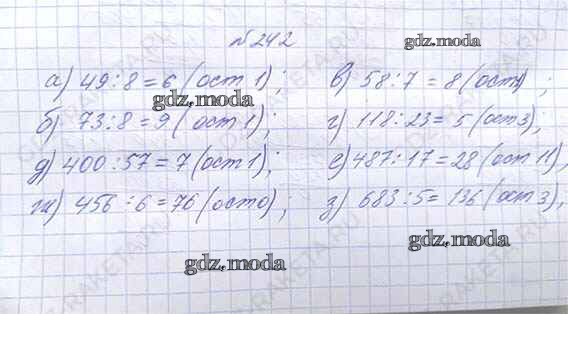 №242
gdz.moda
а) 49:8=6 (ост 1); в) 58:7=8 (ост 2);
gdz.moda
б) 73:8=9 (ост 1); г) 118:23=5 (ост 3),
д) 400:57=7 (ост 1); е) 487:17=28 (ост 11),
ж) 456:6=76 (ост 0); з) 683:5=136 (ост 3),
gdz.moda
gdz.moda